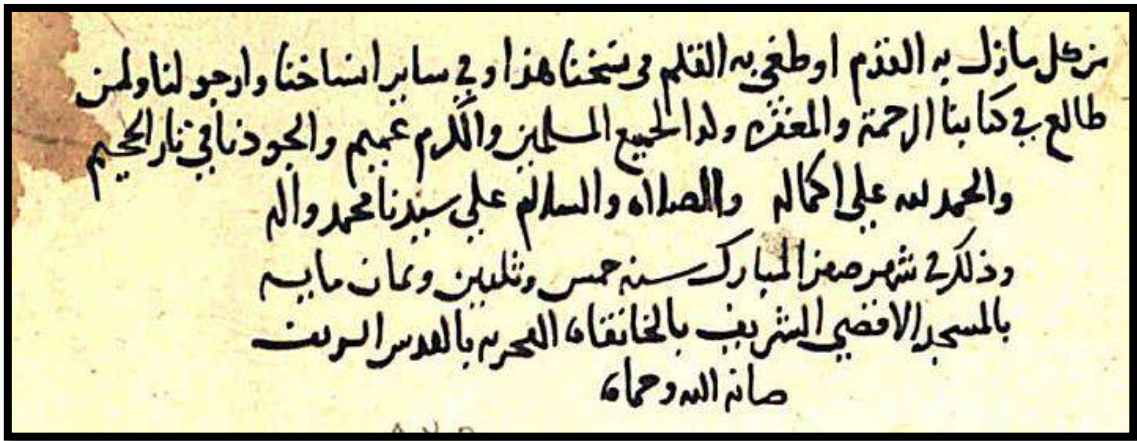 من كل ما زل به القدم او طغى به القلم في نسخنا هذا وفي ساير انساخنا وارجو لنا ولمن
طالع في كتابنا الرحمة والمغفره ولد الجميع المسلمين والكرم عميم والجو ذنا في نار الجحيم
والحمد لله علي اكماله والصلاه والسلام علي سيدنا محمد واله
وذلك في شهر صفر المبارك سنه خمس وثلثين وثمان مايه
بالمسجد الاقصي الشريف بالخانقاه الفخريه بالقدس الشريف
صانه الله وحماه